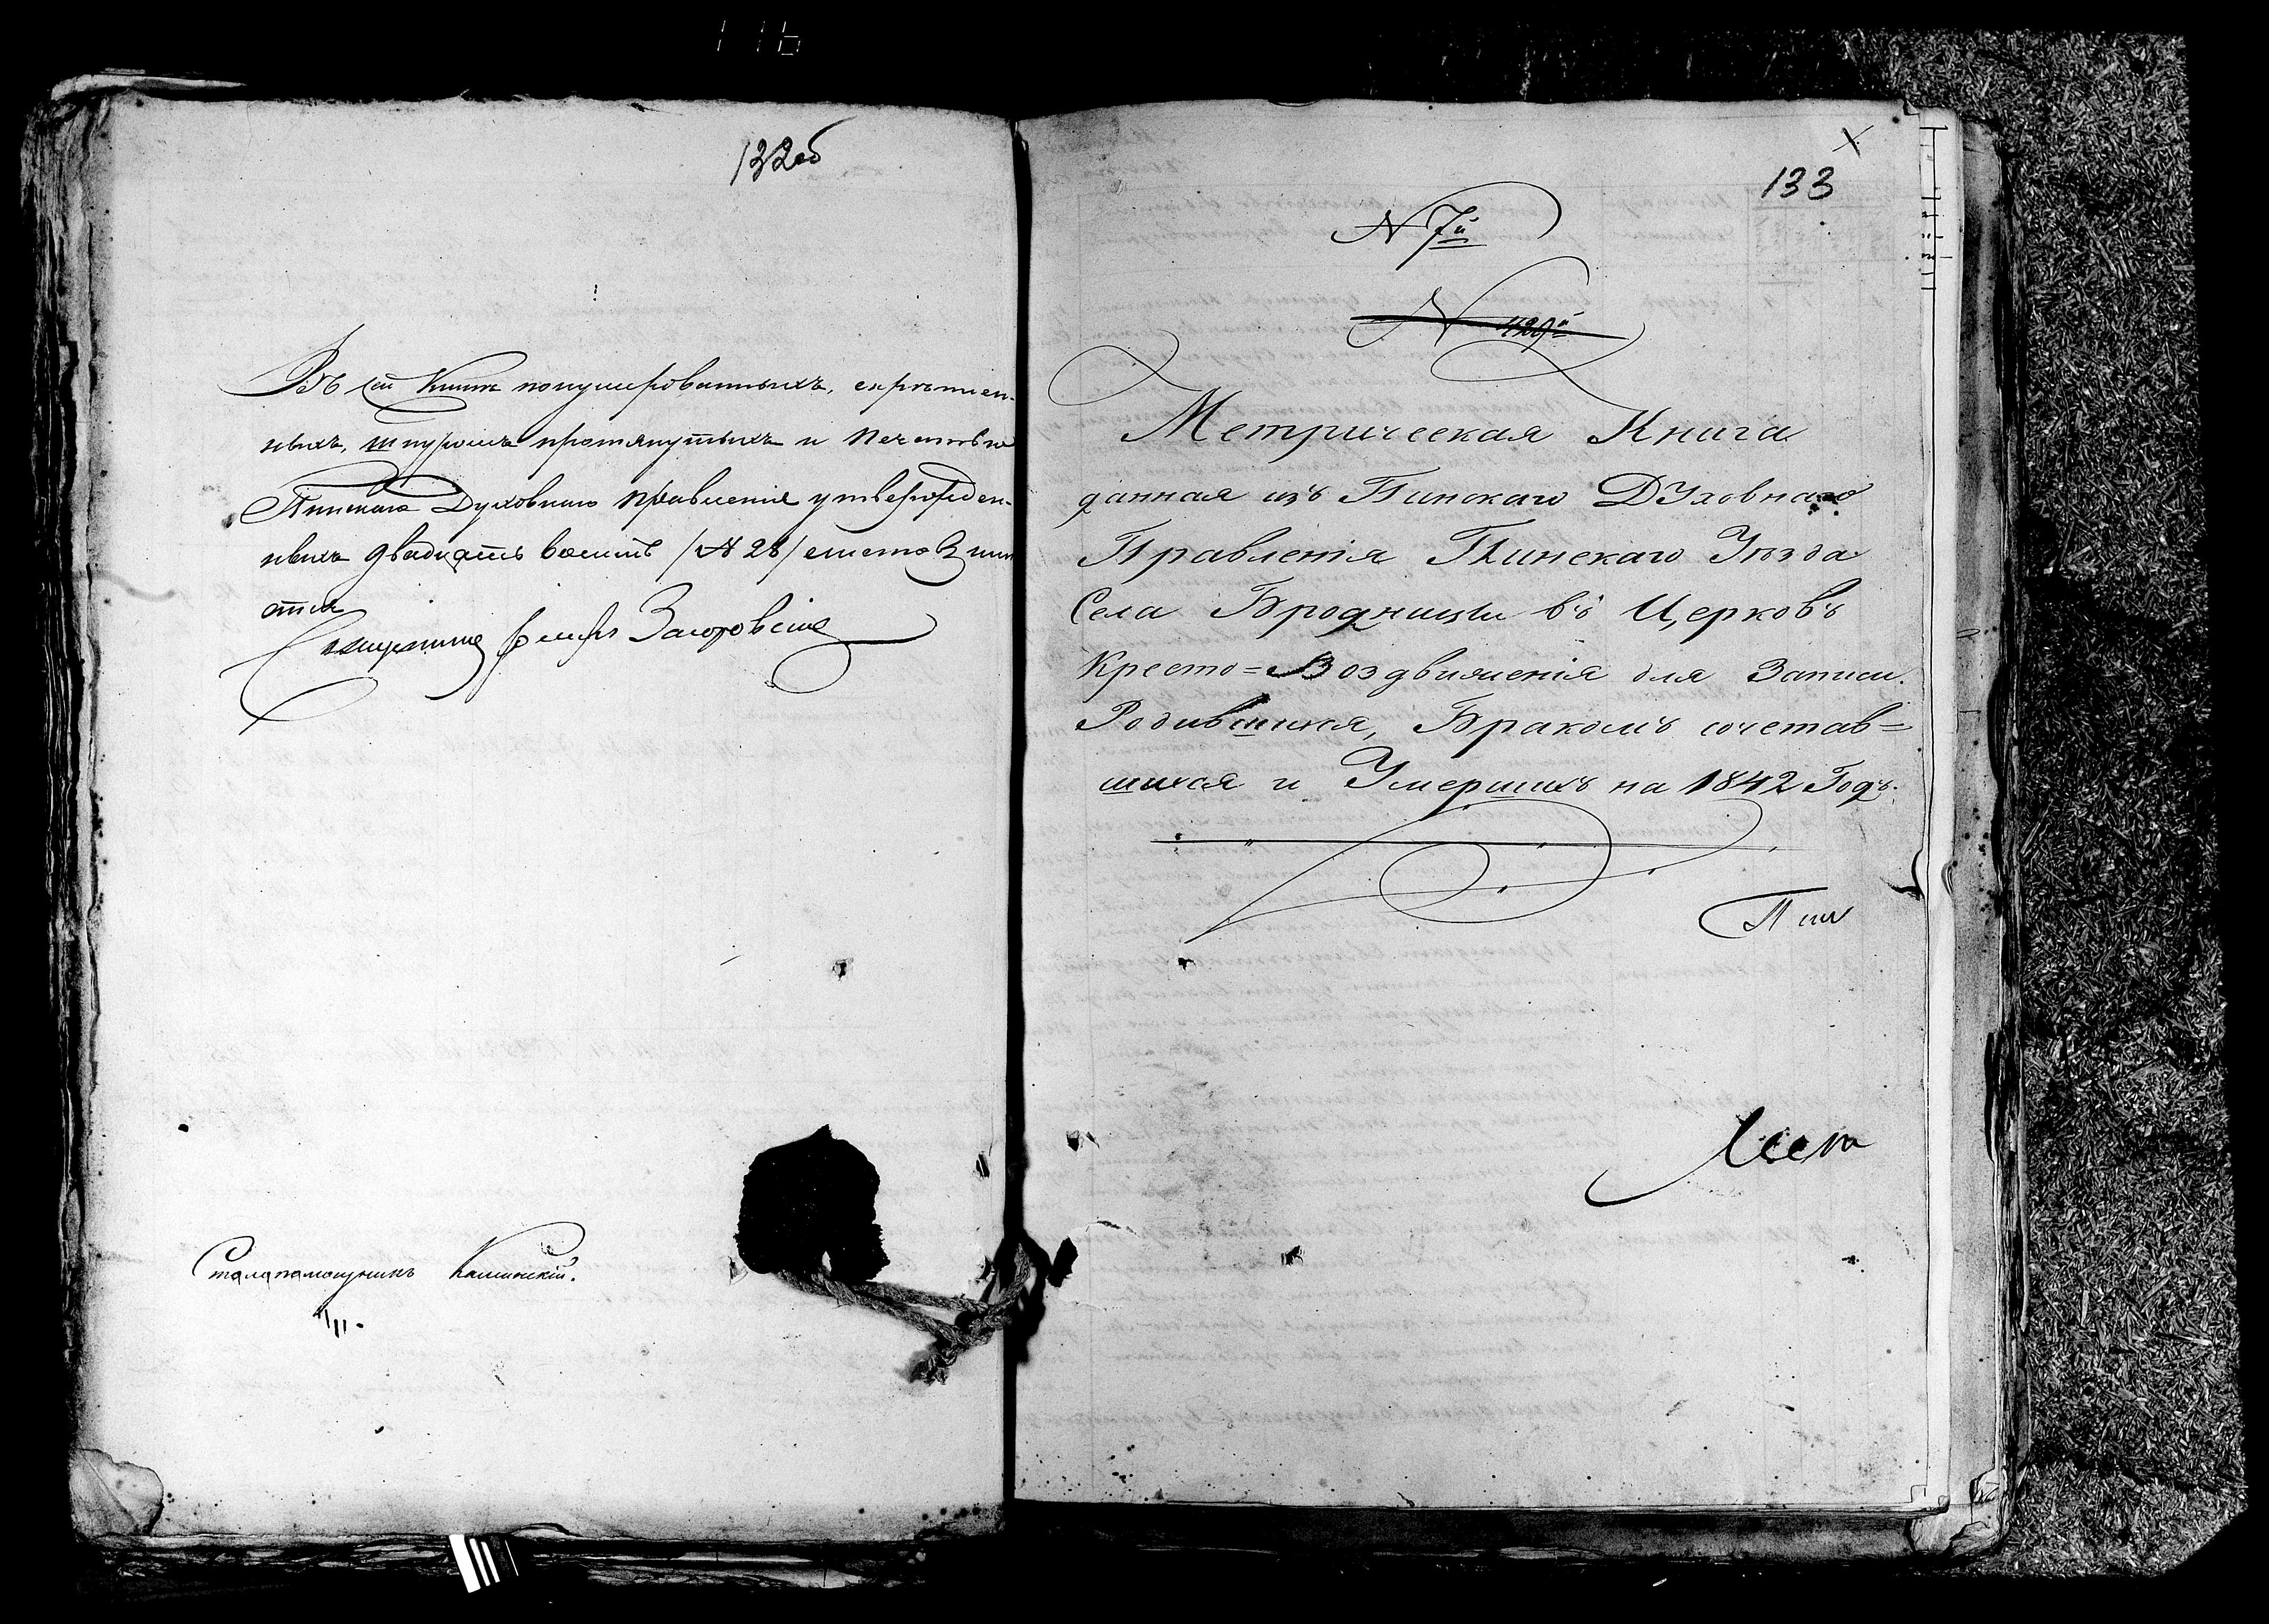 116
132об
Въ сей Книгѣ понумерованныхъ, скрѣплен-
ныхъ, шнуромъ протянутыхъ и печатью
Пинскаго Духовнаго Правленія утвержден-
ныхъ двадцать восемь /N 28/ листовъ
Священникъ Загоровскій
Столапомощникъ Калинскій.
133
N 7й
N 429й
Метрическая Книга
данная изъ Пинскаго Духовнаго
Правленія Пинскаго Уѣзда
Села Бродницы въ Церковъ
Кресто=Воздвиженія для Записи
Родившихся, Бракомъ сочетав=
шихся и Умершихъ на 1842 Годъ.
Пин